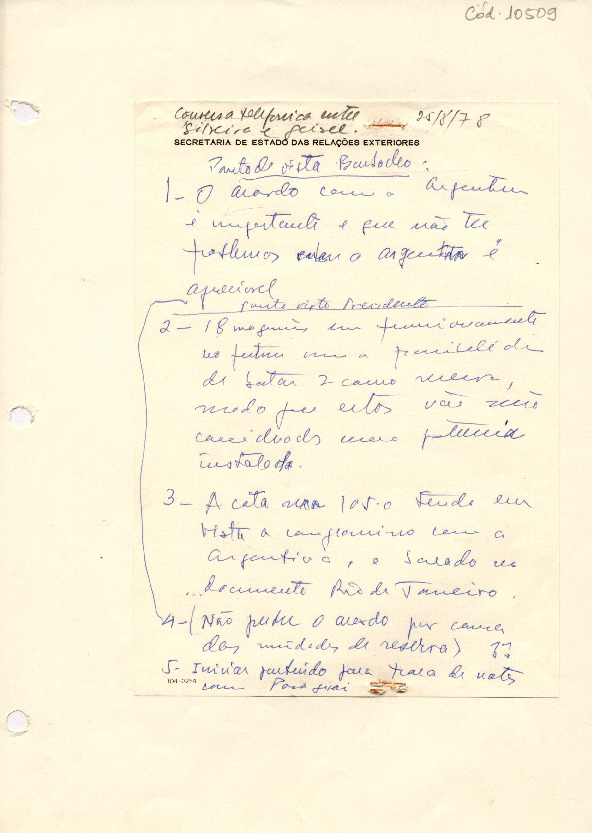 Cód. 10509
Conversa telefonica entre 25/8/78
Silveira e Geisel.
SECRETARIA DE ESTADO DAS RELAÇÕES EXTERIORES
Ponto de vista Brasileiro:
1- O acordo com a Argentina
é importante e que não ter
problemas com a argentina é
apreciavel
ponto vista Presidente
2- 18 maquinas em funcionamento
no futuro com a possibilidade
de botar 2 como reserva,
modo que estas vão não
consideradas como potencia
instalada.
3- A cota 105.0 tendo em
vista o compromisso com a
Argentina, e baseado no
documento Rio de Janeiro.
4-(Não perder o acordo por causa
das unidades de reserva) ??
5- Iniciar partindo para troca de notas
com Paraguai